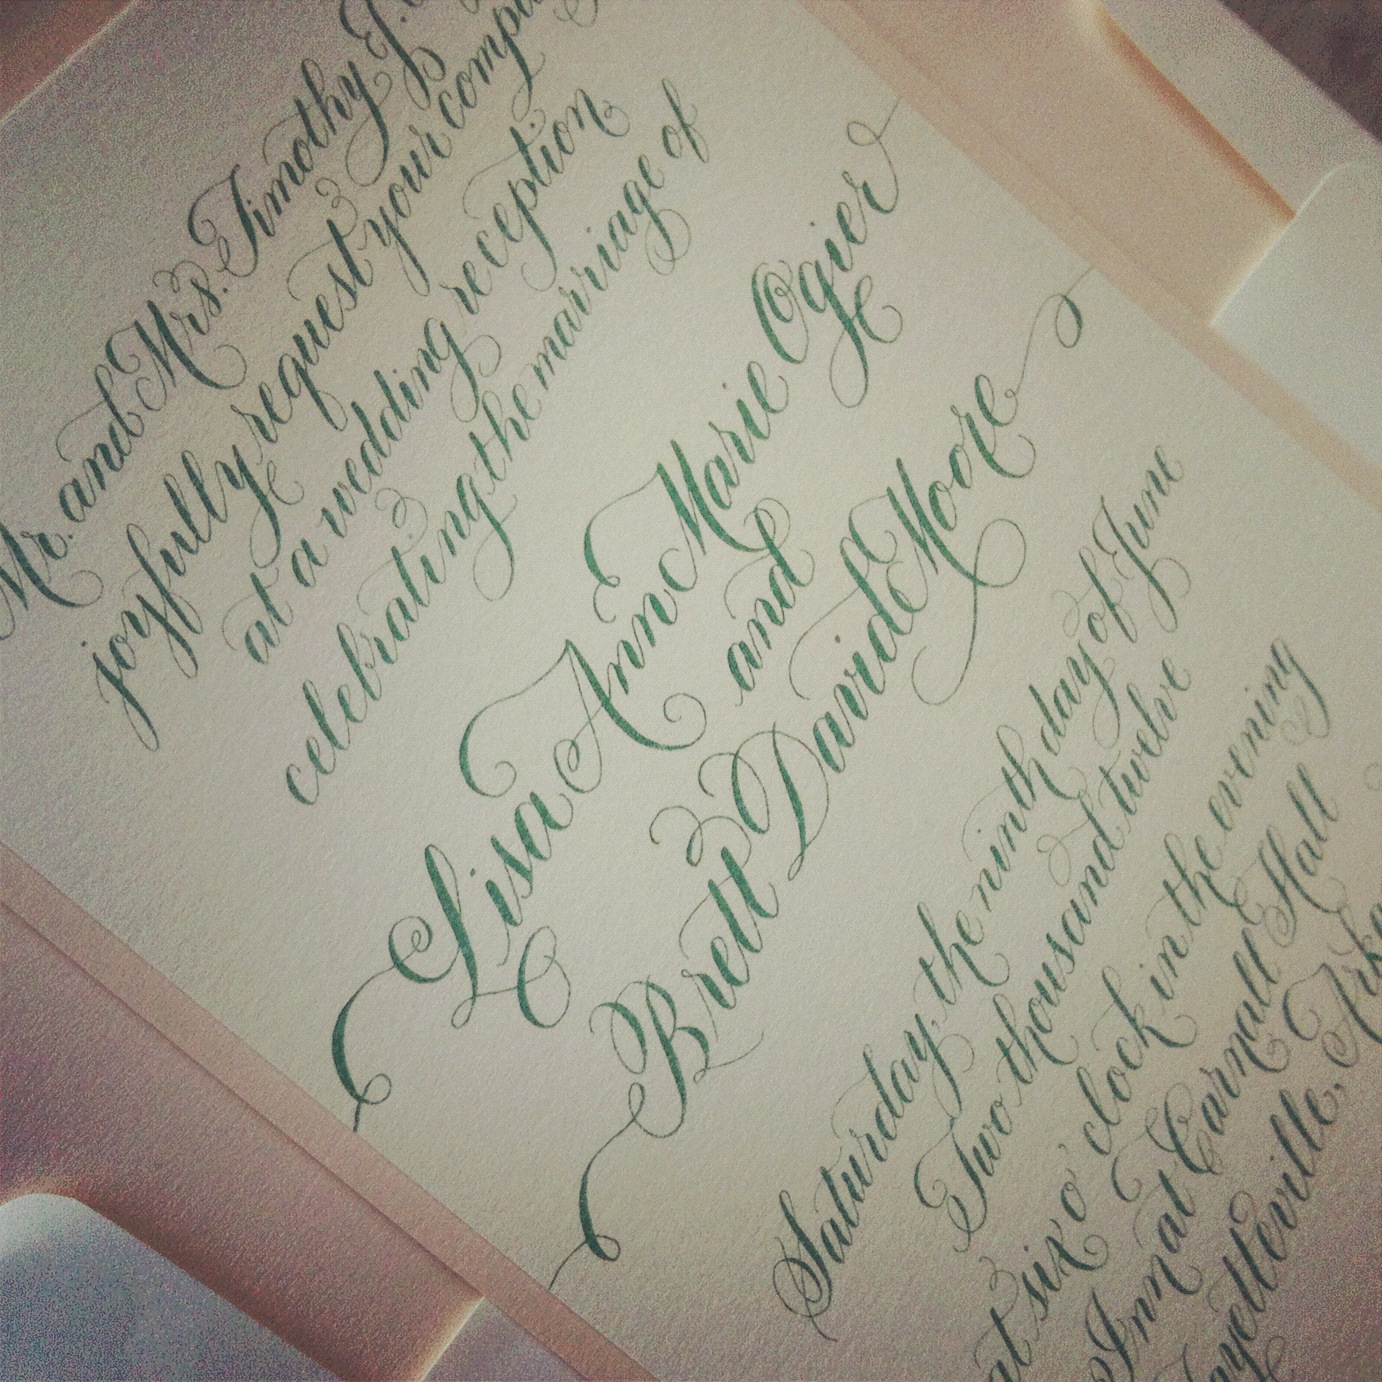 Mr. and Mrs. Timothy J.
joyfully request your
at a wedding reception
celebrating the marriage of
Lisa Ann Marie Ogier
and
Brett David Moore
Saturday, the ninth day of June
Two thousand twelve
at six o'clock in the evening
Inn at Carnall Hall